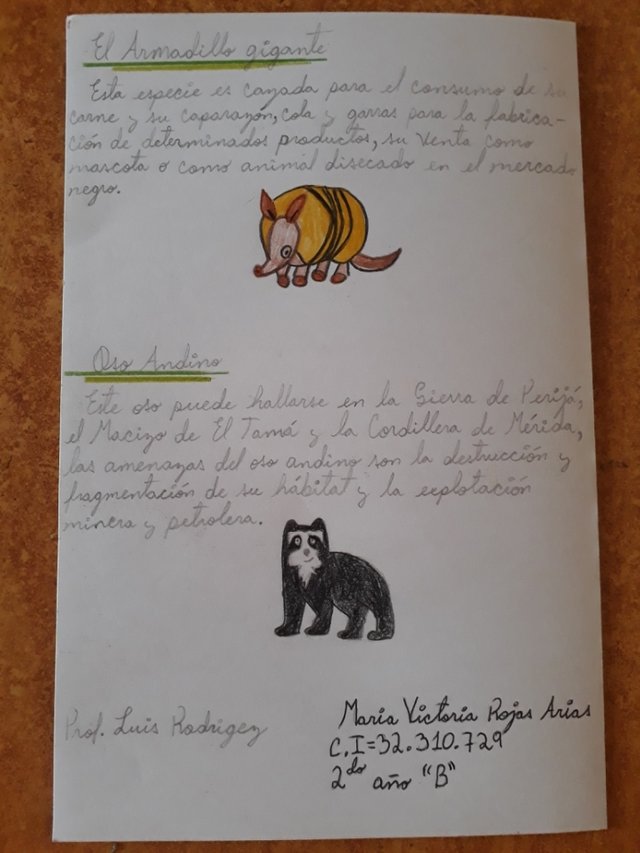 El Armadillo gigante
Esta especie es cazada para el consumo de su
carne y su caparazón, cola y garras para la fabrica-
ción de determinados productos, su venta como
mascota o como animal disecado en el mercado
negro.
Oso Andino
Este oso puede hallarse en la Sierra de Perijá,
el Macizo de El Tamá y la Cordillera de Mérida,
las amenazas del oso andino son la destrucción y
fragmentación de su hábitat y la explotación
minera y petrolera.
Prof. Luis Rodrigez
María Victoria Rojas Arias
C.I=32.310.729
2do año "B"